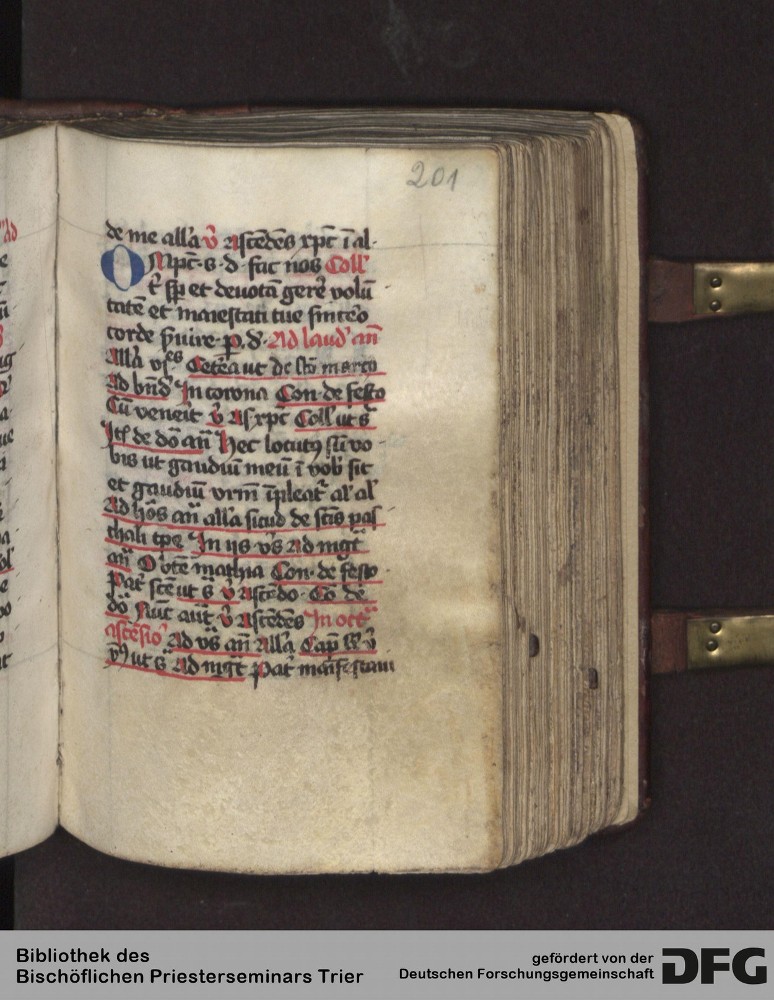 201
de me alla v̄ Ascēdēs xp̄c ī al
Omp̄c · s · d · fac nos Coll
t̄ sp̄ et deuotā gere᷑ volū
tatē et maiestati tue sincēo
corde ẜuire · p · d · Ad laud an̄
Alla vs̄ Cetēa ut de sc̄o marco
Ad bn̄d In corona Con · de festo
Cū venerit v̄ As xp̄c Coll ut s̄
It̄ de dō an̄ Hec locutꝰ sū vo
bis ut gaudiū meū ī vob sit
et gaudiū vrm̄ īpleat᷑ al al
Ad hōs an̄ alla sicud de sc̄is pas
chali tp̄e In iis vs̄ Ad mgt̄
an̄ O vtē mathia Con · de festo
Pat᷑ scē ut s̄ v̄ Ascēdo · Co de
dō Nūc aūt v̄ Ascēdēs In oct
ascēsio Ad vs̄ an̄ Alla Cap v̄
ut s̄ Ad mgt̄ Pat᷑ māifestaui
Bibliothek des
Bischöflichen Priesterseminars Trier
gefördert von der
Deutschen Forschungsgemeinschaft DFG